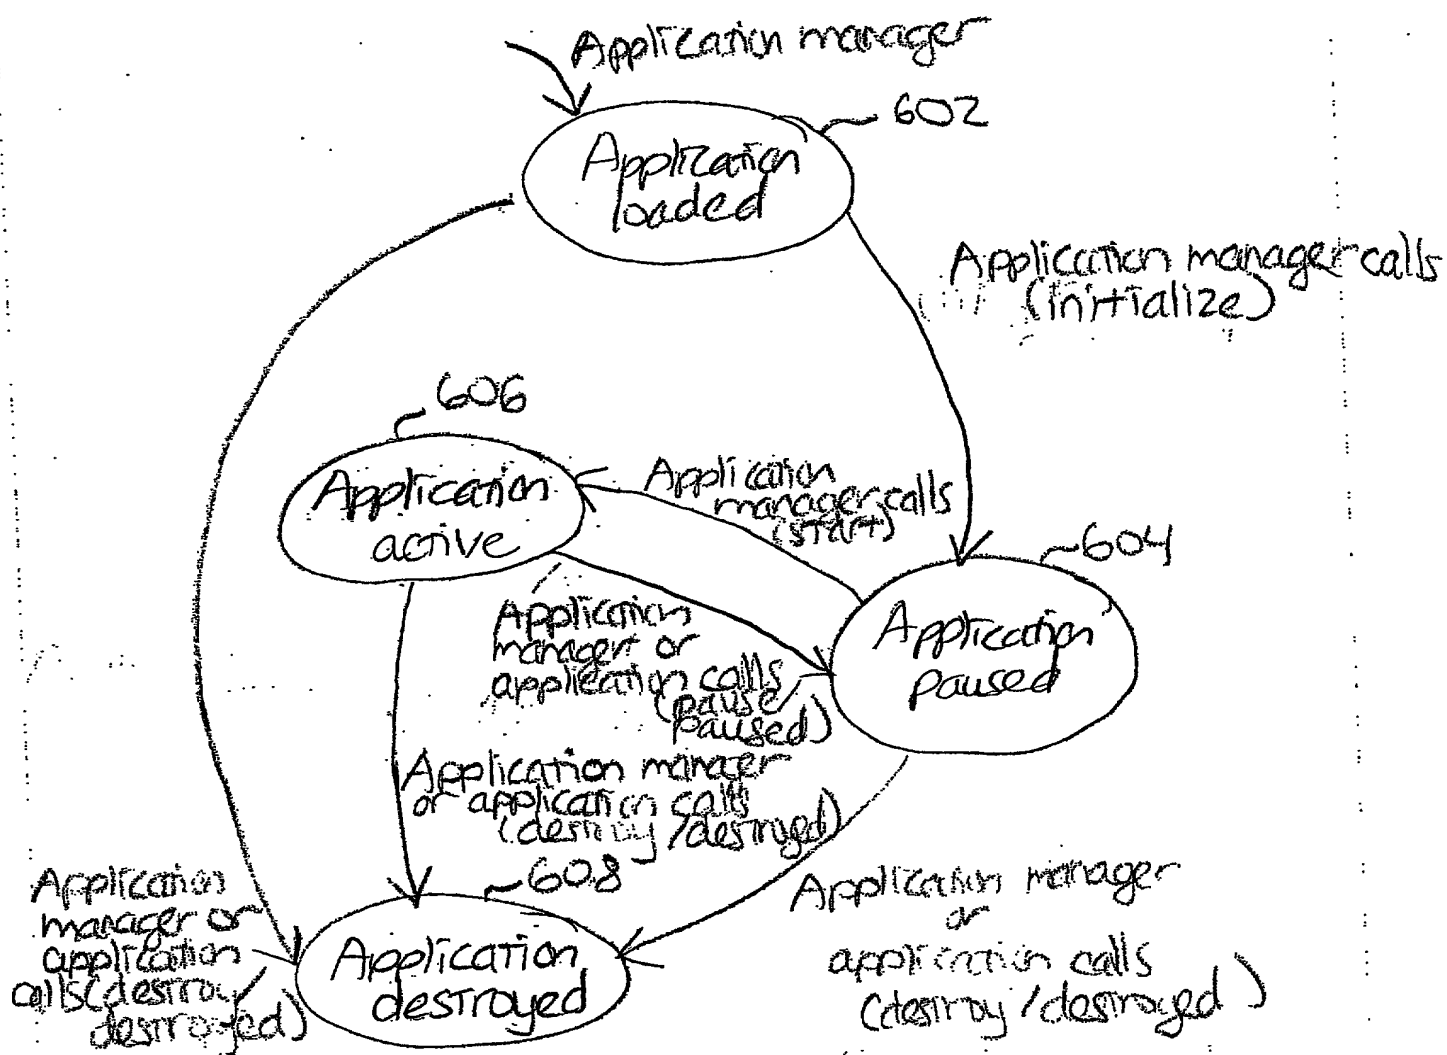 Application manager
602
Application
loaded
Application manager calls
(initialize)
606
Application
active
Application
manager calls
(start)
604
Application
paused
Application
manager or
application calls
(pause/
paused)
Application manager
or application calls
(destroy/destroyed)
608
Application
destroyed
Application
manager or
application
calls(destroy/
destroyed)
Application manager
or
application calls
(destroy/destroyed)